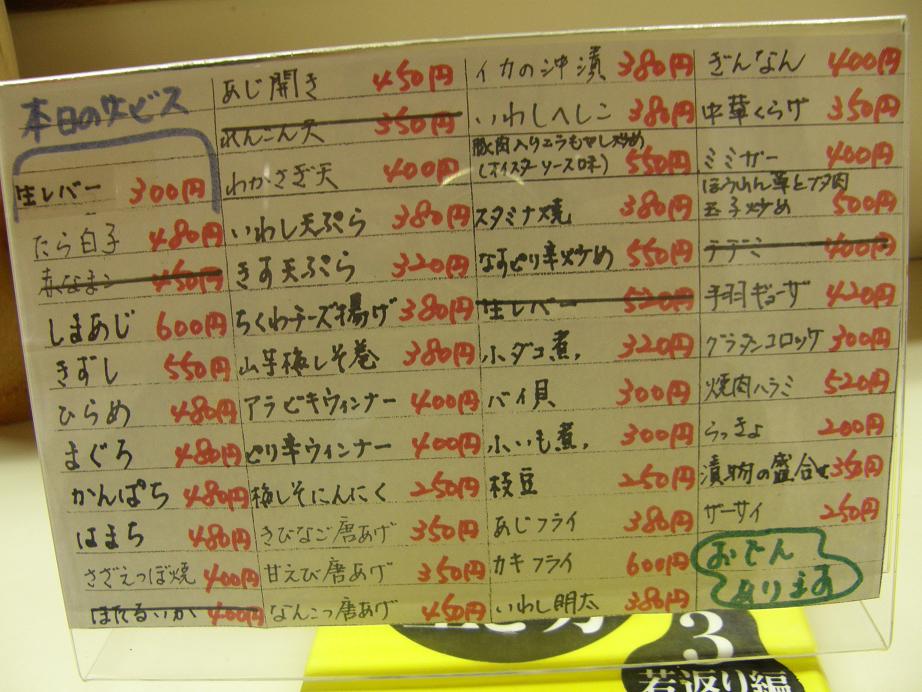 本日のサービス
生レバー 300円
たら白子 480円
赤なまこ 450円
しまあじ 600円
きずし 550円
ひらめ 480円
まぐろ 480円
かんぱち 480円
はまち 480円
さざえつぼ焼 400円
ほたるいか 400円
あじ開き 450円
れんこん天 350円
わかさぎ天 400円
いわし天ぷら 380円
きす天ぷら 320円
ちくわチーズ揚げ 380円
山芋梅しそ巻 380円
アラビキウィンナー 400円
ピリ辛ウィンナー 400円
梅しそにんにく 250円
きびなご唐あげ 350円
甘えび唐あげ 350円
なんこつ唐あげ 450円
イカの沖漬 380円
いわしへしこ 380円
豚肉入りニラもやし炒め
(オイスターソース味) 550円
スタミナ焼 380円
なすピリ辛炒め 550円
生レバー 520円
小ダコ煮, 320円
バイ貝 300円
小いも煮, 300円
枝豆 250円
あじフライ 380円
カキフライ 600円
いわし明太 380円
ぎんなん 400円
中華くらげ 350円
ミミガー 400円
ほうれん草とブタ肉
玉子炒め 500円
テデミ 400円
手羽ギョーザ 420円
グラタンコロッケ 300円
焼肉ハラミ 520円
らっきょ 200円
漬物の盛合せ 350円
ザーサイ 250円
おでん
あります
3
若返り編